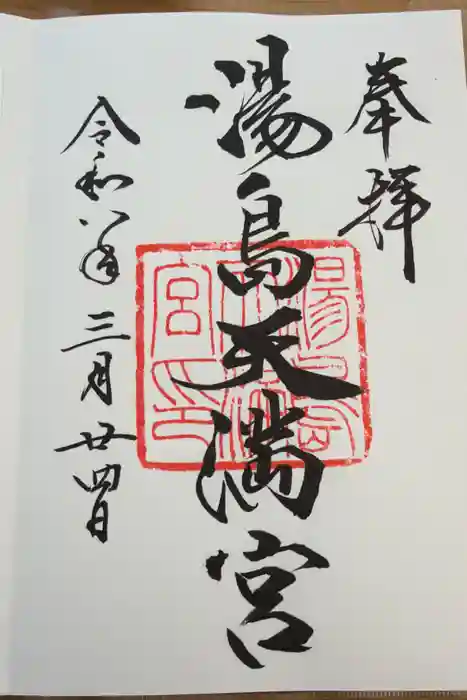 奉拝
湯島天満宮
湯島天満宮印
令和八年三月廿四日